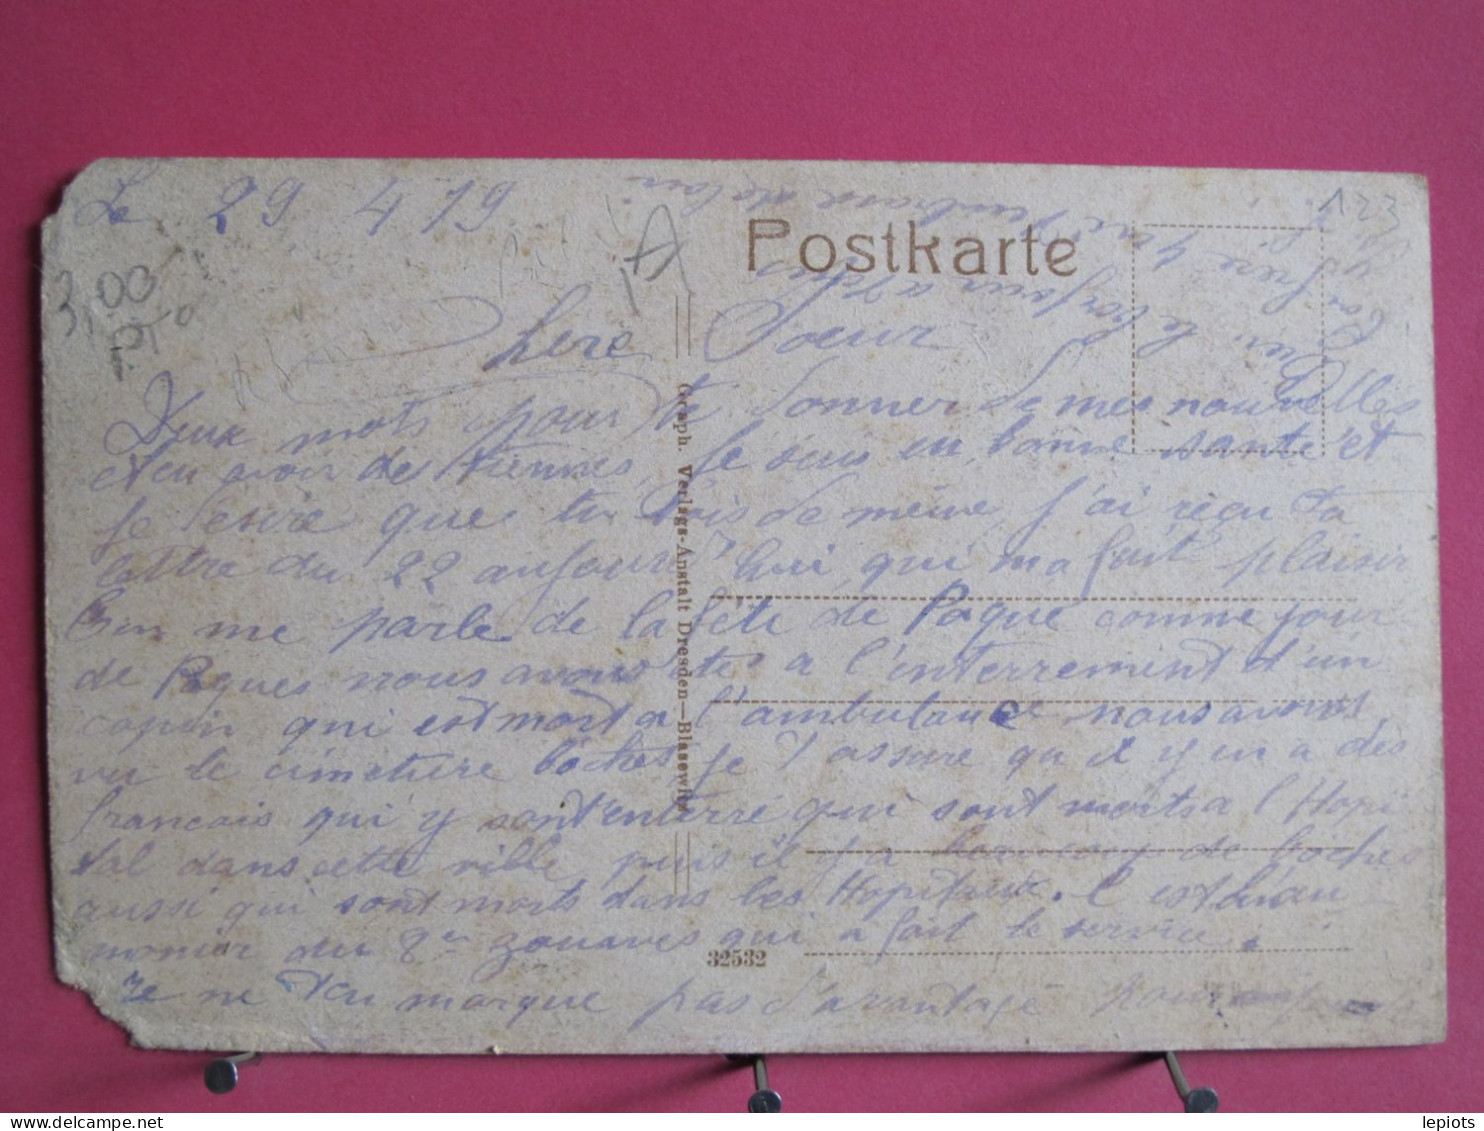 Le 29 4 19
3,00
A
123
Postkarte
Chere Soeur
Deux mots pour te donner de mes nouvelles
et en avoir des tiennes, Je suis en bonne sante et
je desire que tu sois de meme, j'ai reçu ta
lettre du 22 aujourd'hui, qui ma fait plaisir
tu me parle de la fête de Paque comme jour
de Paques nous avons ete a l'enterrement d'un
copin qui est mort a l'ambulance nous avons
vu le cimetiere boches je t'assure qu'il y en a des
francais qui y sont enterré qui sont morts a l'Hopi
tal dans cette ville, puis il y a beaucoup de boches
aussi qui sont morts dans les Hopitaux. C'est l'au
monier du 8e zouaves qui a fait le service.
Je ne t'en marque pas d'avantage pour
ton frère
qui
le bonjour a
de loin
Graph. Verlags-Anstalt Dresden—Blasewitz
32532
lepiots
delcampe.net